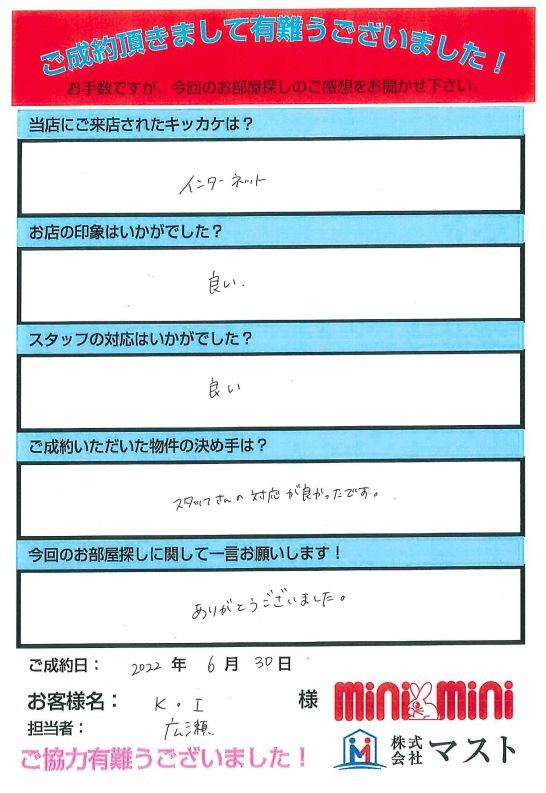 ご成約頂きまして有難うございました！
お手数ですが、今回のお部屋探しのご感想をお聞かせ下さい。
当店にご来店されたキッカケは？
インターネット
お店の印象はいかがでした？
良い.
スタッフの対応はいかがでした？
良い
ご成約いただいた物件の決め手は？
スタッフさんの対応が良かったです。
今回のお部屋探しに関して一言お願いします！
ありがとうございました。
ご成約日： 2022 年 6 月 30 日
お客様名： K.I 様
担当者： 広瀬
ご協力有難うございました！
mini mini
株式会社 マスト